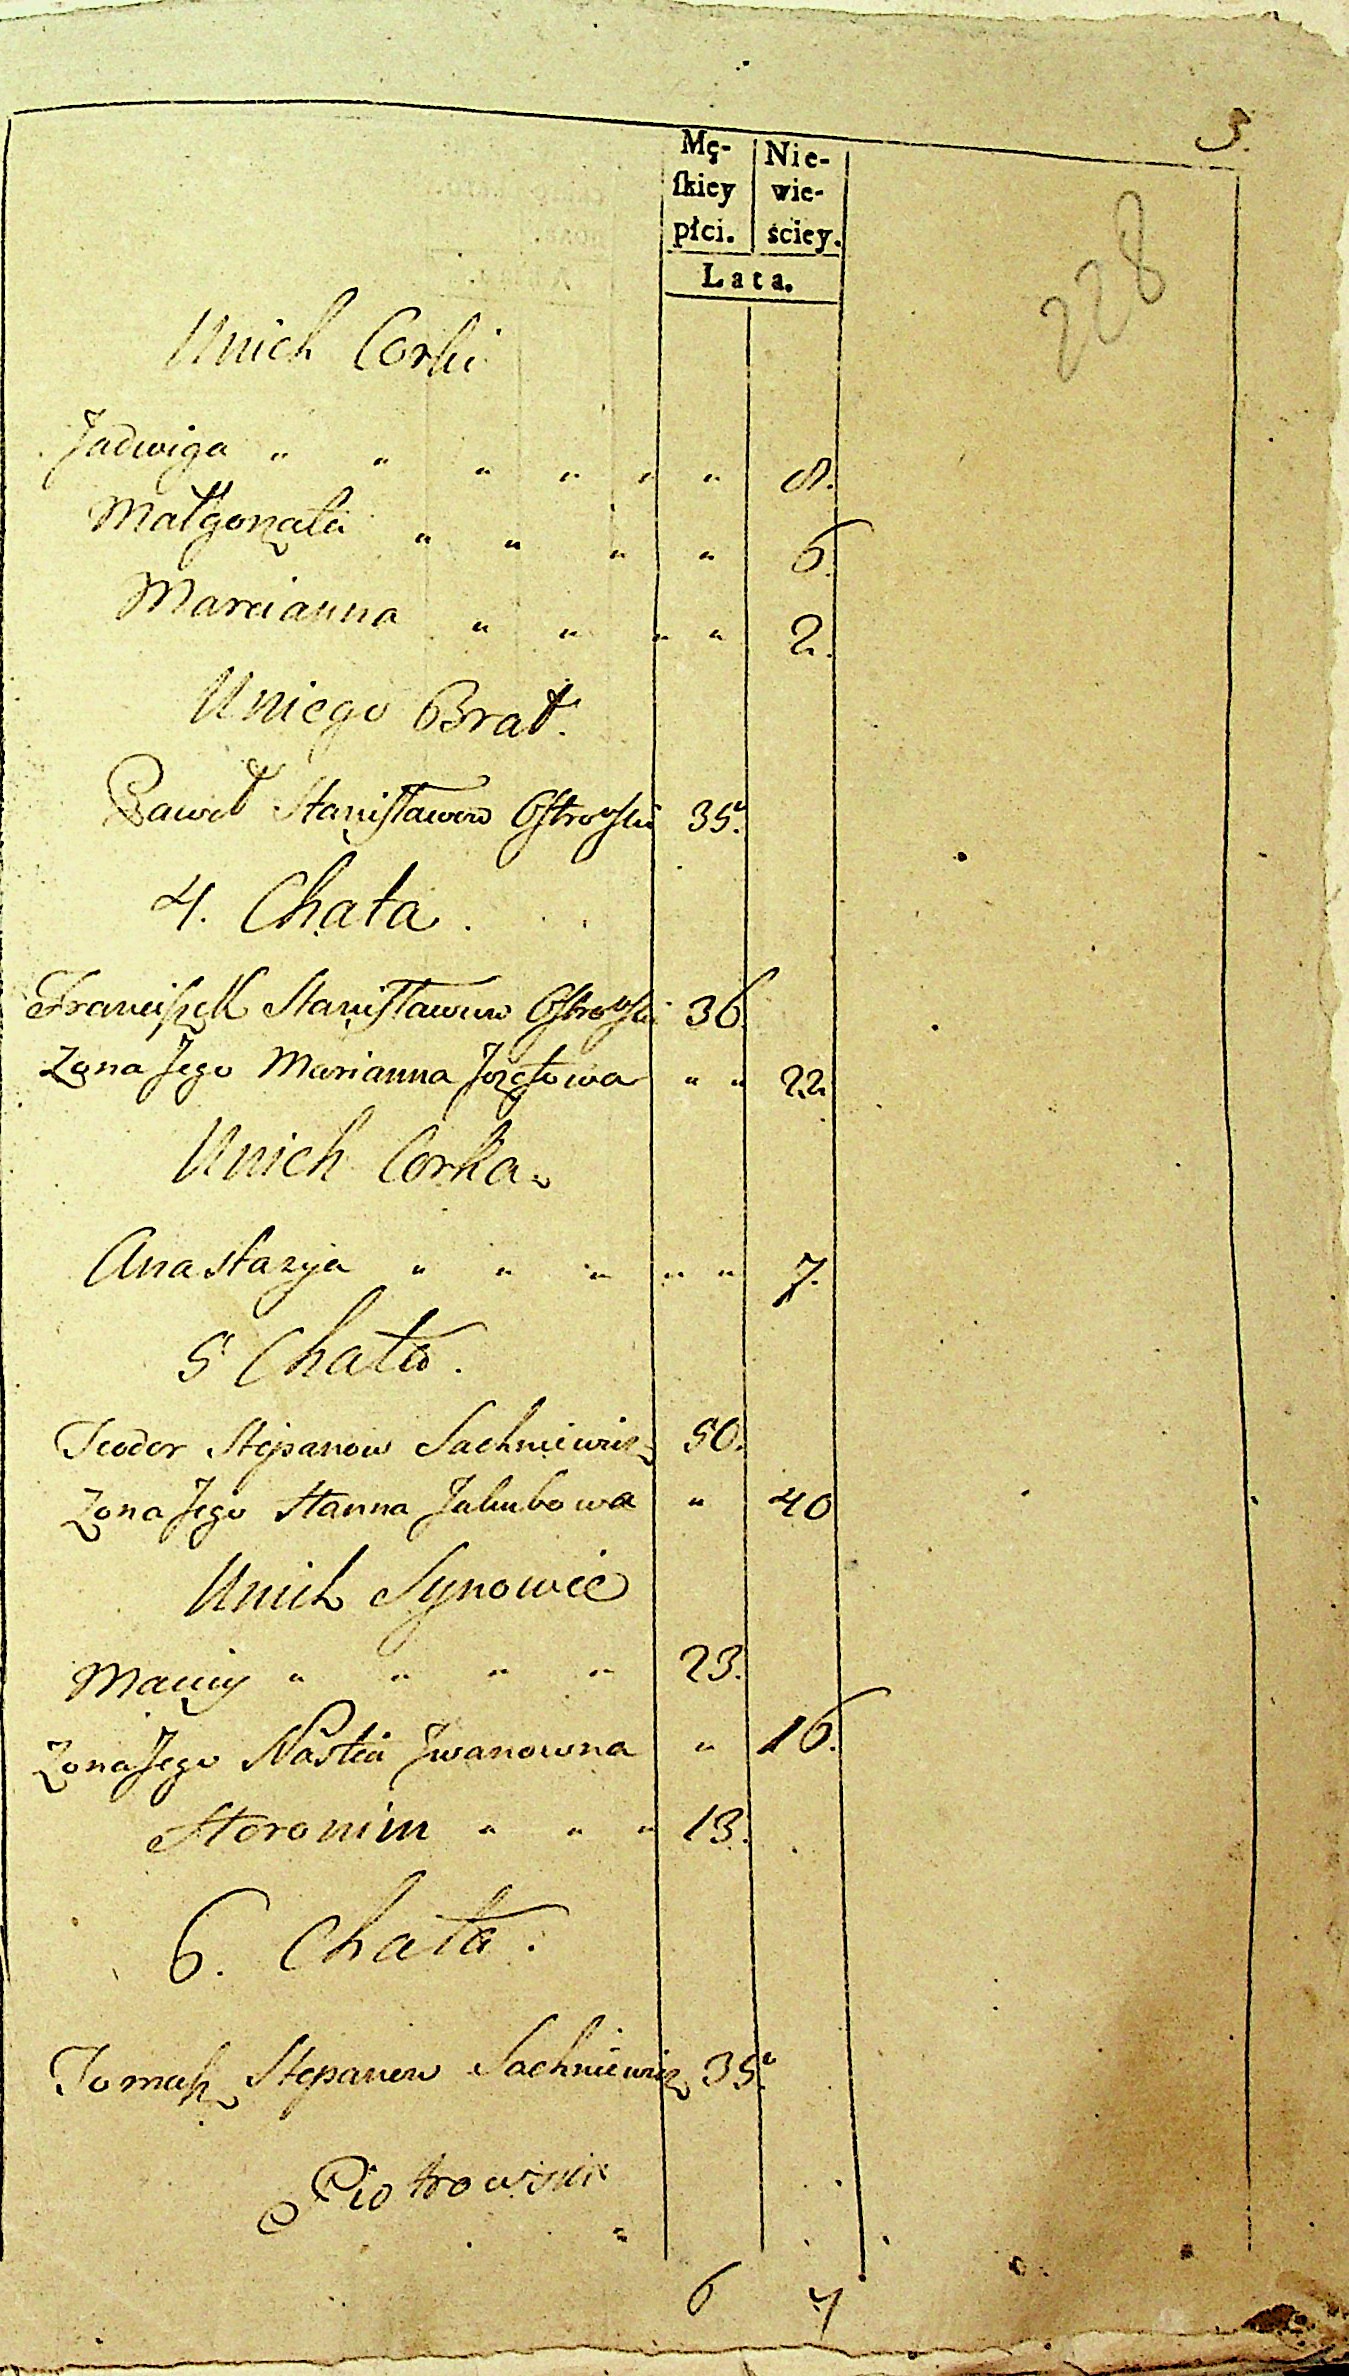 3.
228
Mę-
ſkiey
płci.
Nie-
wie-
ściey.
Lata.
Unich Corki
Jadwiga " " " " " " 8.
Małgorzata " " " " 6.
Marcianna " " " " 2.
Uniego Brat.
Paweł Stanisławow Ostrowski 35.
4. Chata.
Franciszek Stanisławow Ostrowski 36.
Zona Jego Marianna Jozefowa " " 22
Unich Corka.
Anastazya " " " " " 7.
5 Chata.
Teodor Stepanow Sachniewicz 50.
Zona Jego Hanna Jakubowa " 40
Unich Synowie
Maciej " " " " 23.
Zona Jego Nastia Jwanowna " 16.
Heronim " " " 13.
6. Chata.
Tomasz Stepanow Sachniewicz 35.
Piotrowski
6 7